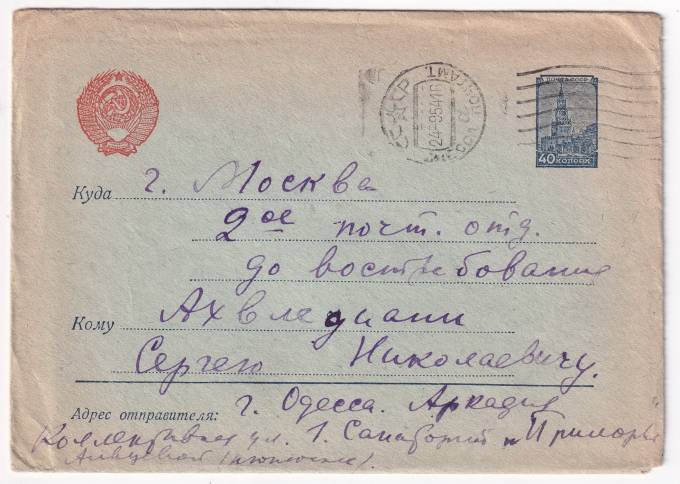 ПОЧТА СССР
40 КОПЕЕК
СССР
ОДЕССА ПОЧТАМТ
24-9 54 16
Куда г. Москва
2ое почт. отд.
до востребования
Кому Ахвледиани
Сергею Николаевичу.
Адрес отправителя: г. Одесса. Аркадия
Коллективная ул. 1. Санаторий "Приморье